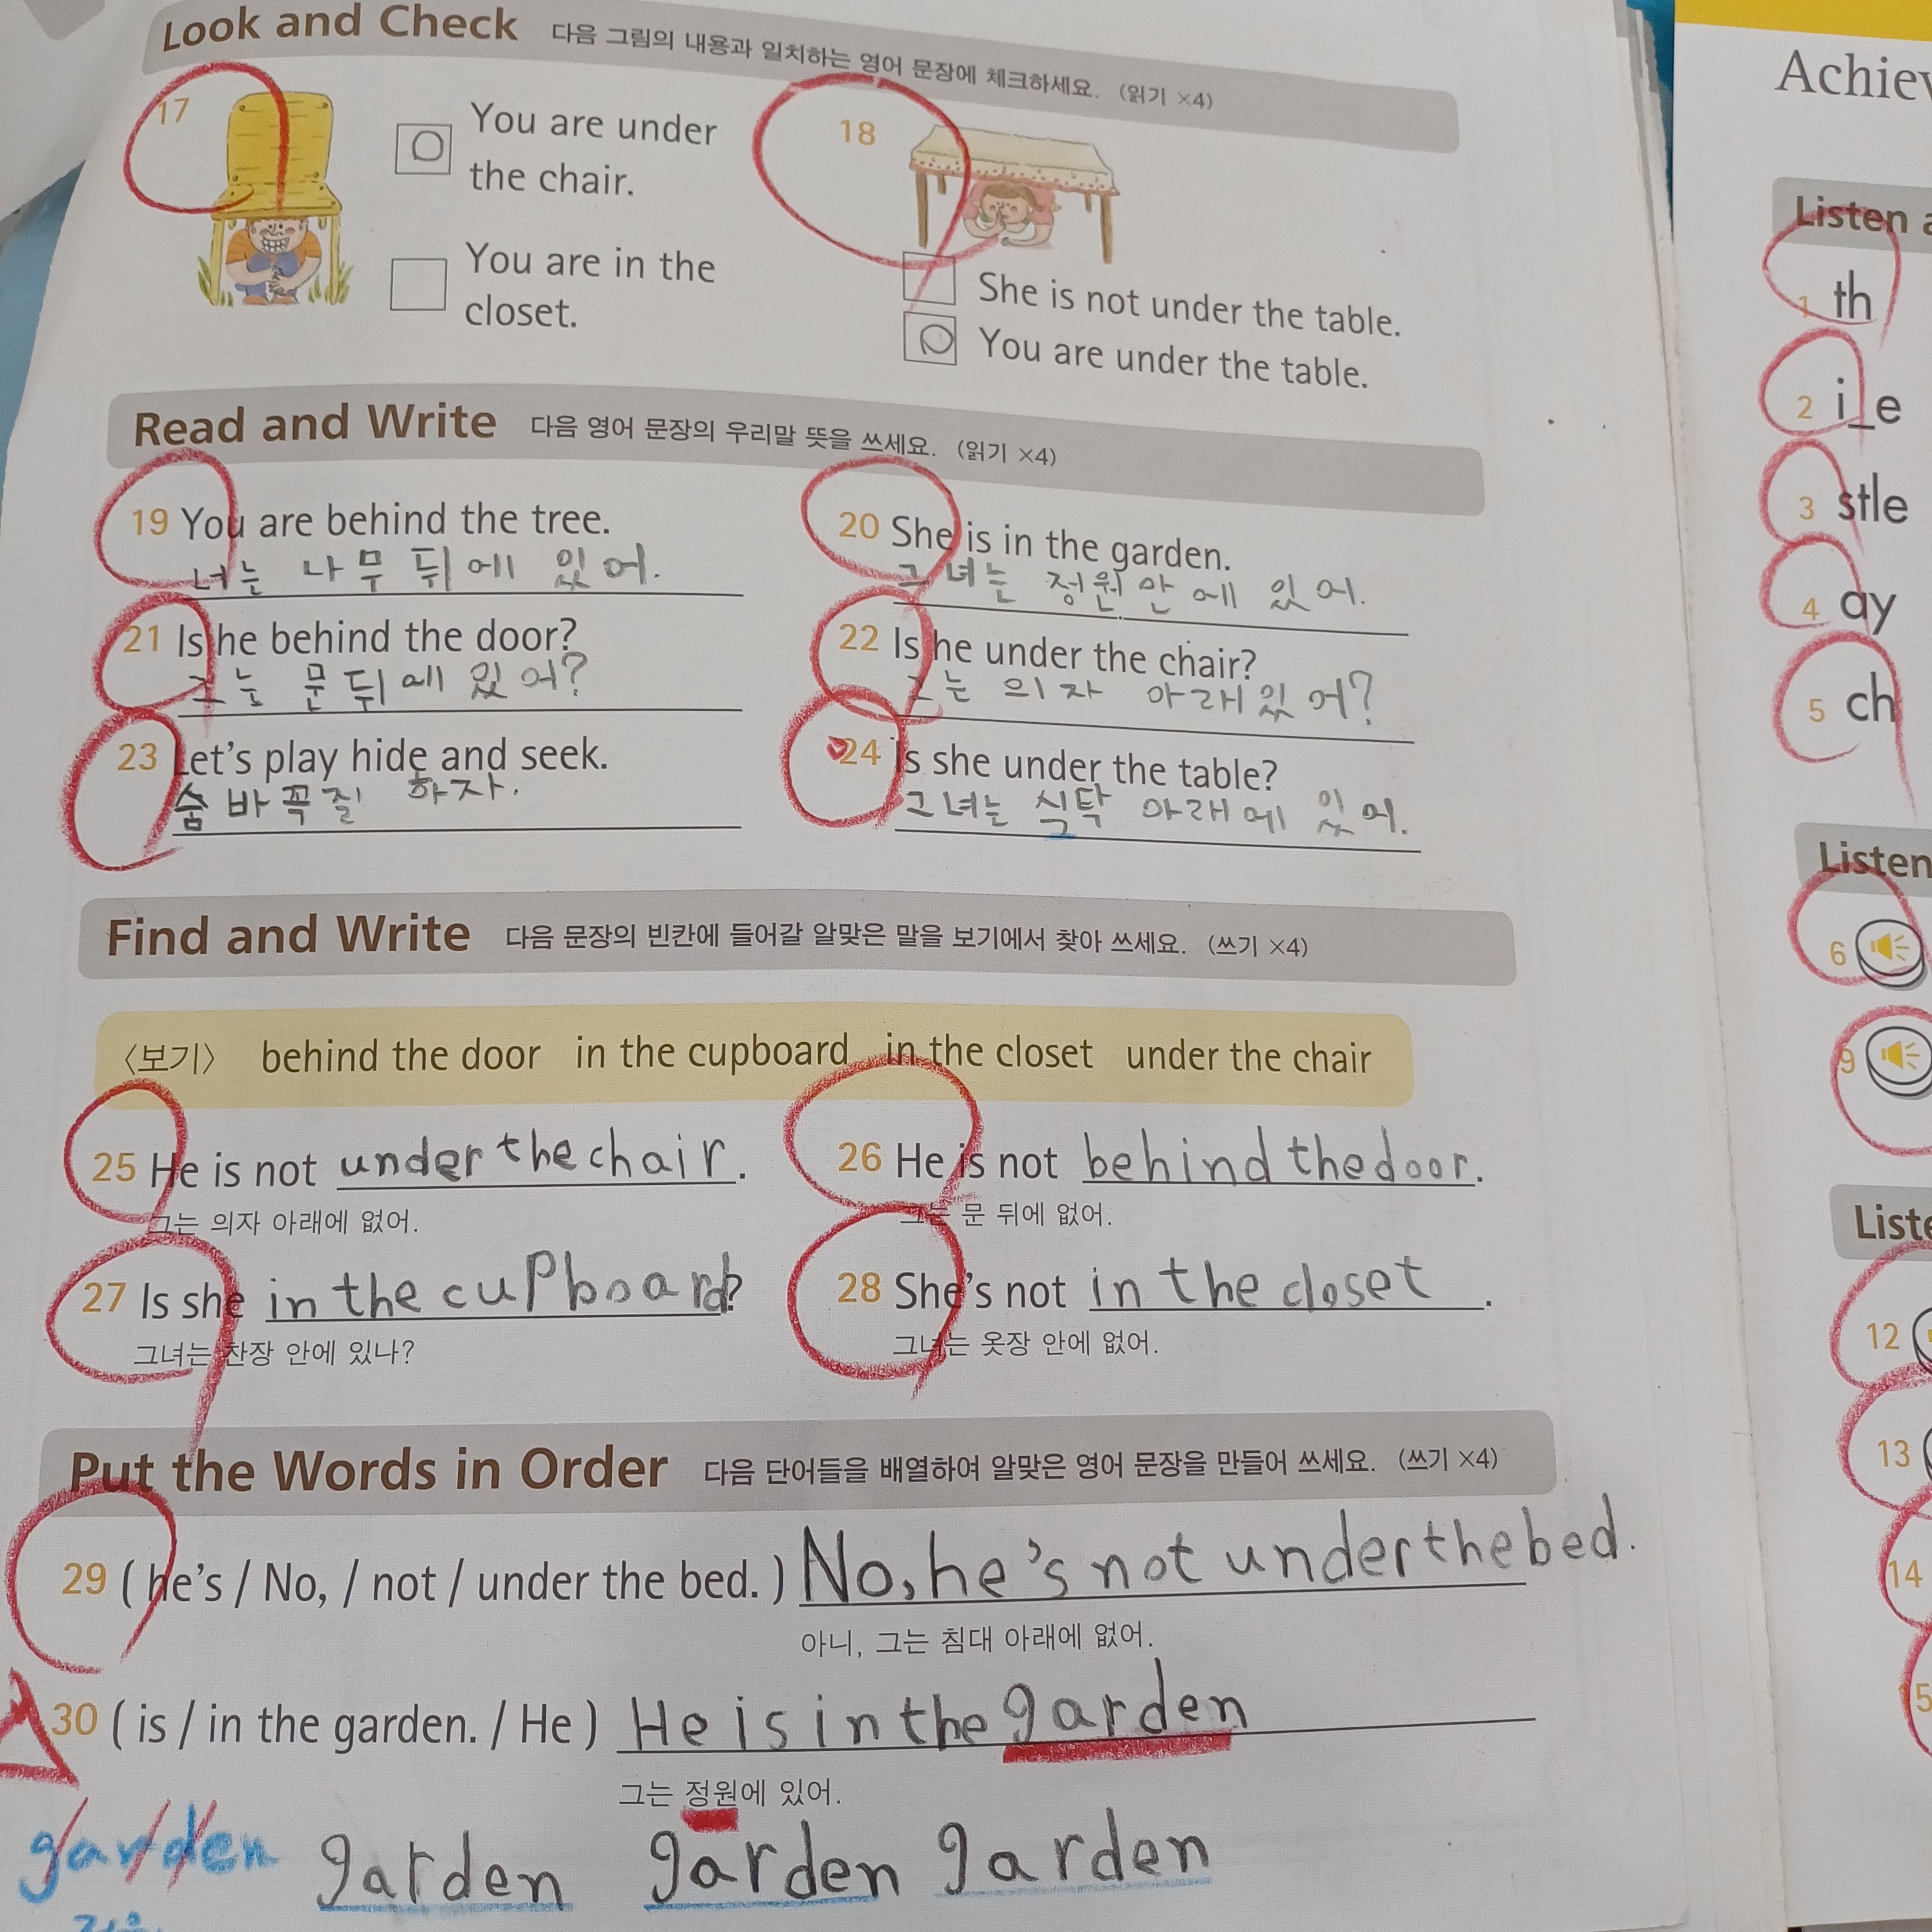 Look and Check 다음 그림의 내용과 일치하는 영어 문장에 체크하세요. (읽기 ×4)
17
You are under
the chair.
You are in the
closet.
18
She is not under the table.
You are under the table.
Read and Write 다음 영어 문장의 우리말 뜻을 쓰세요. (읽기 ×4)
19 You are behind the tree.
너는 나무 뒤에 있어.
20 She is in the garden.
그녀는 정원 안에 있어.
21 Is he behind the door?
그는 문 뒤에 있어?
22 Is he under the chair?
그는 의자 아래 있어?
23 Let's play hide and seek.
숨바꼭질 하자.
24 Is she under the table?
그녀는 식탁 아래에 있어.
Find and Write 다음 문장의 빈칸에 들어갈 알맞은 말을 보기에서 찾아 쓰세요. (쓰기 ×4)
〈보기〉 behind the door in the cupboard in the closet under the chair
25 He is not under the chair.
그는 의자 아래에 없어.
26 He is not behind the door.
그는 문 뒤에 없어.
27 Is she in the cupboard?
그녀는 찬장 안에 있나?
28 She's not in the closet.
그녀는 옷장 안에 없어.
Put the Words in Order 다음 단어들을 배열하여 알맞은 영어 문장을 만들어 쓰세요. (쓰기 ×4)
29 ( he's / No, / not / under the bed. ) No, he's not under the bed.
아니, 그는 침대 아래에 없어.
30 ( is / in the garden. / He ) He is in the garden
그는 정원에 있어.
garden garden garden garden
Achiev
Listen a
1 th
2 i_e
3 stle
4 ay
5 ch
Listen
6
9
Liste
12
13
14
15